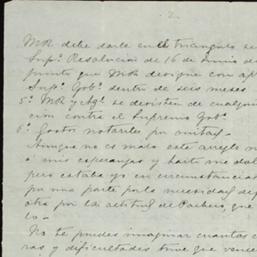 2.
MR debe darle en el triangulo se
Sup.º Resolucion de 16 de Junio de
punto que MR designe con ap
Sup.º Gob.º dentro de seis meses
5.º MR y Ag.º se desisten de cualquier
cion contra el Supremo Gob.º
6.º Gastos notariales por mitad.-
Aunque no es malo este arreglo n
á mis esperanzas y harto me dol
pero estaba yo en circunstancias
por una parte por la necesidad de
otra por la actitud de Pacheco que
lo-
No te puedes imaginar cuantas c
ras y dificultades tuve que vence